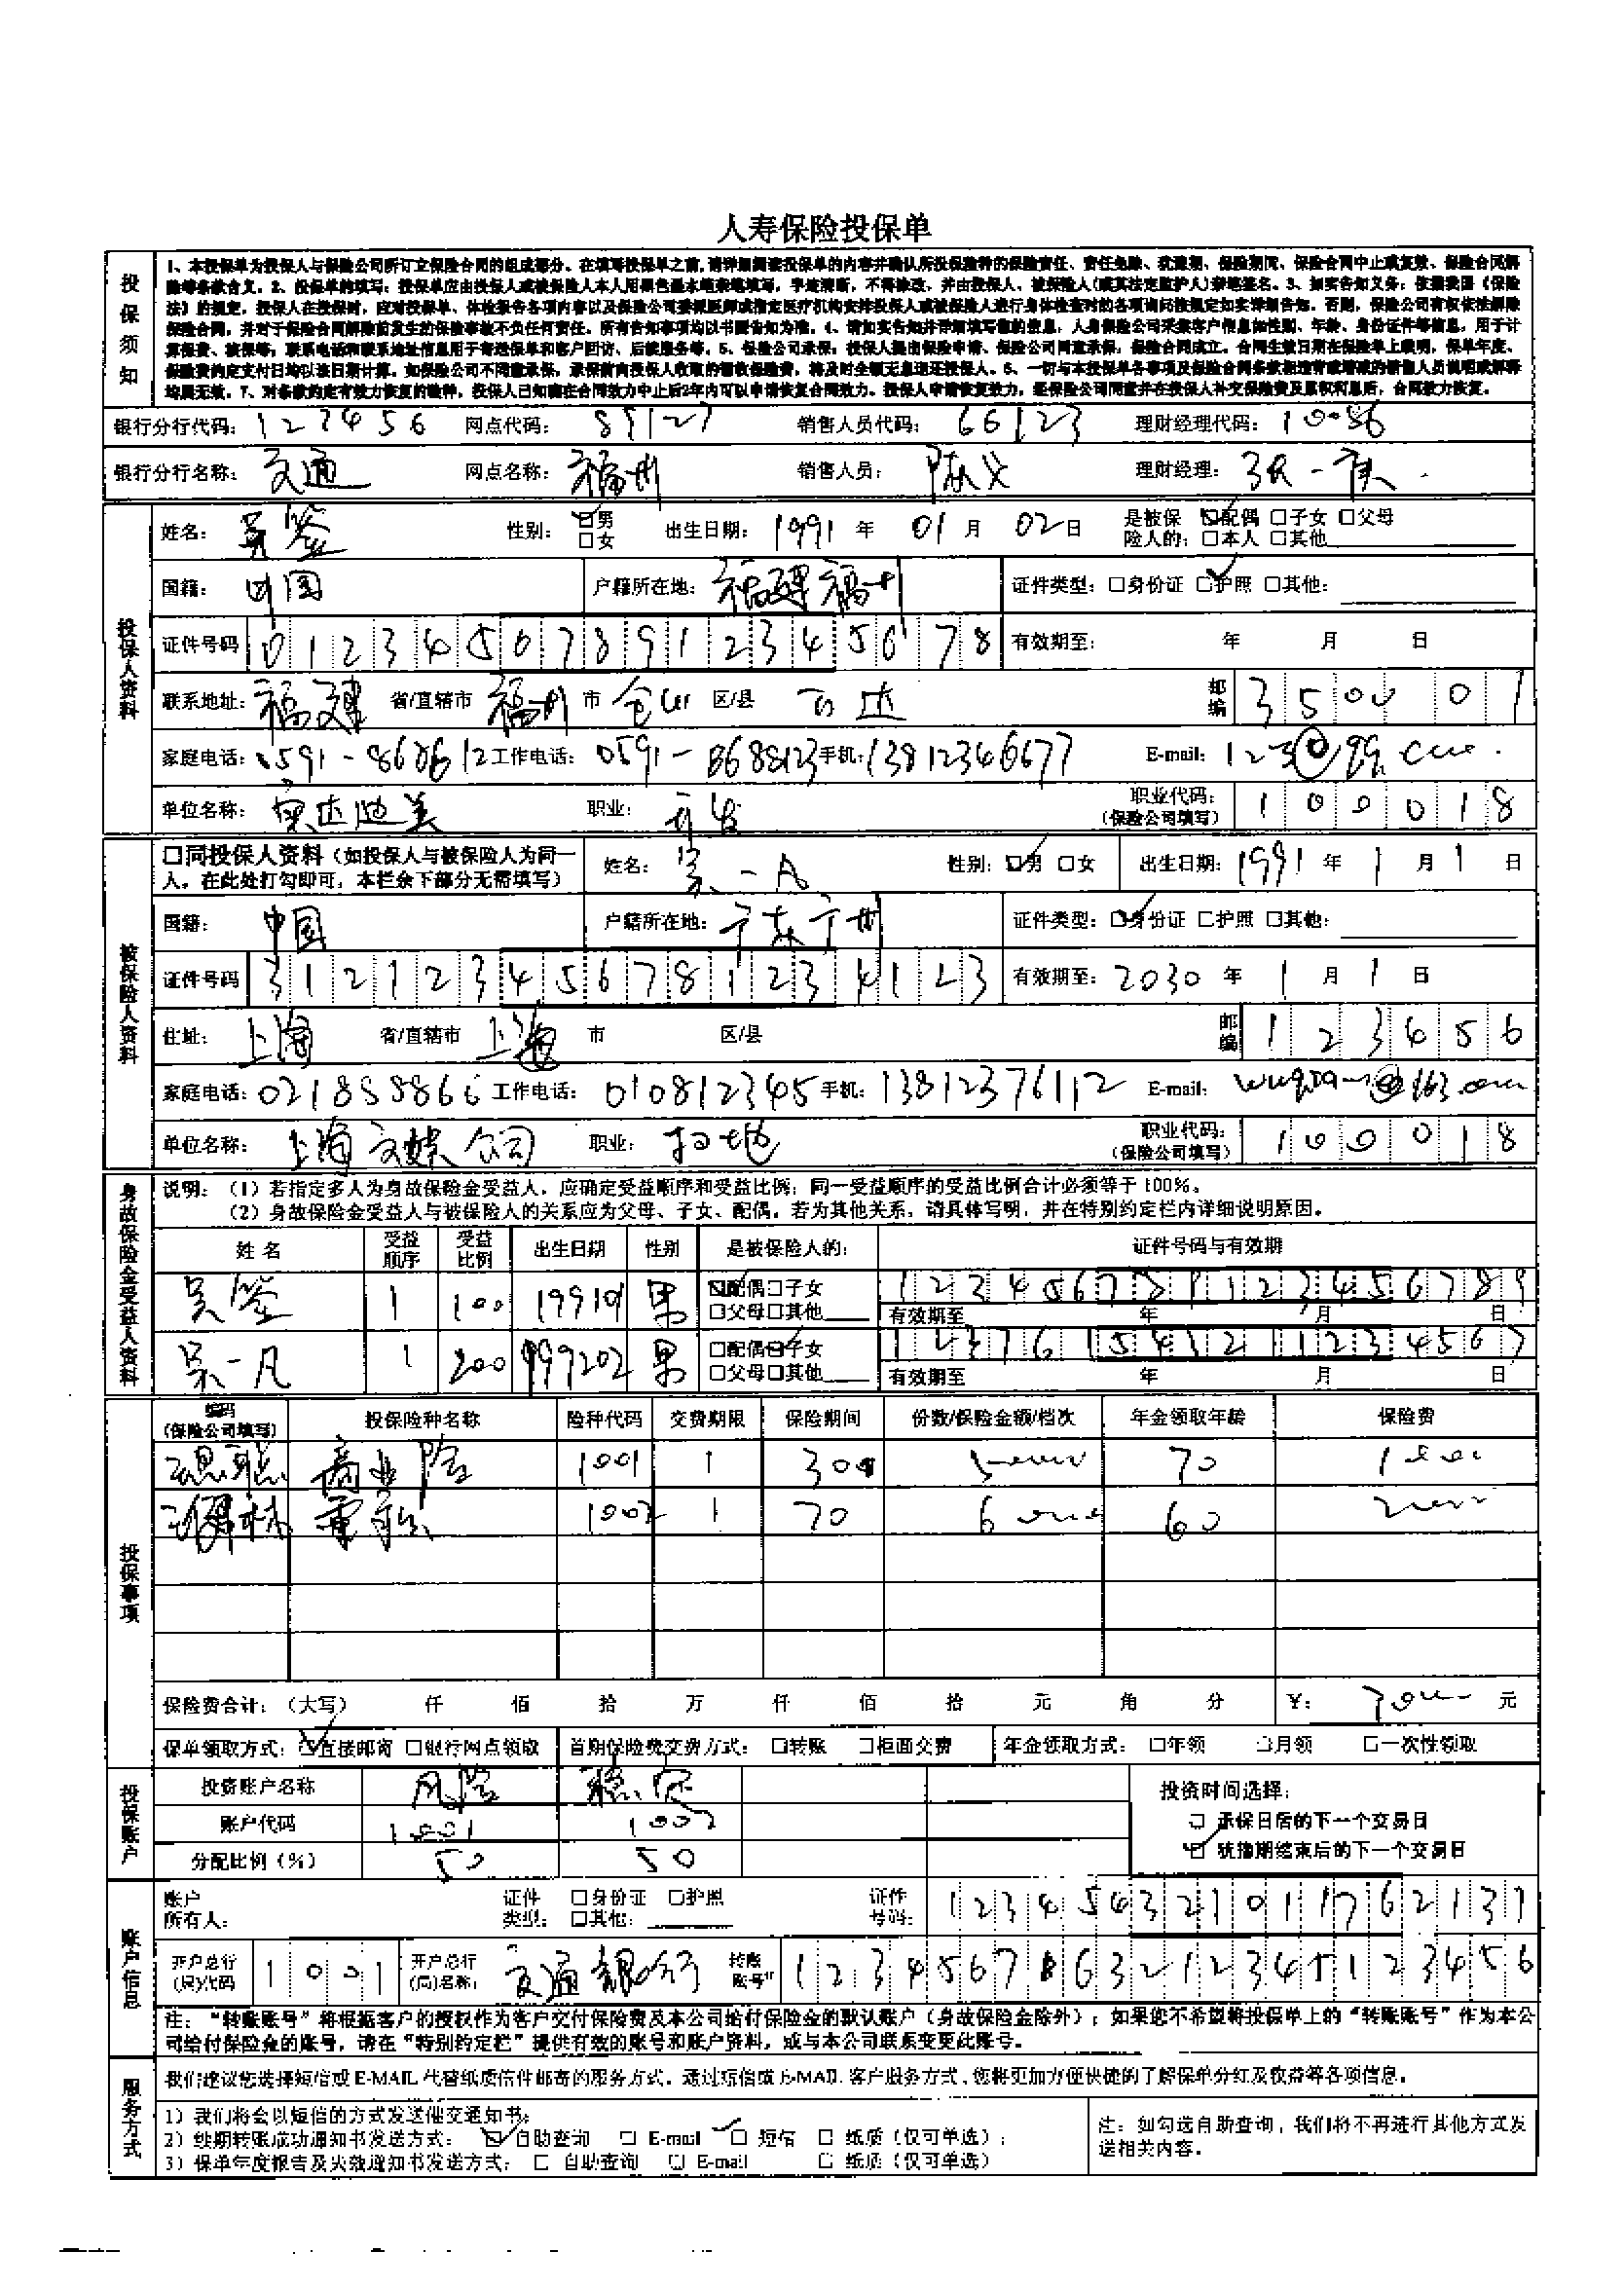 人寿保险投保单
投保须知
1、本投保单为投保人与保险公司所订立保险合同的组成部分。在填写投保单之前,请详细阅读投保单的内容并确认所投保险种的保险责任、责任免除、犹豫期、保险期间、保险合同中止或复效、保险合同解
除等条款含义。2、投保单的填写:投保单应由投保人或被保险人本人用黑色墨水笔亲笔填写,字迹清晰,不得涂改,并由投保人、被保险人(或其法定监护人)亲笔签名。3、如实告知义务:依据我国《保险
法》的规定,投保人在投保时,应对投保单、体检报告各项内容以及保险公司委派医师或指定医疗机构安排投保人或被保险人进行身体检查时的各项询问按规定如实详细告知。否则,保险公司有权依法解除
保险合同,并对于保险合同解除前发生的保险事故不负任何责任。所有告知事项均以书面告知为准。4、请如实告知并详细填写您的信息,人身保险公司采集客户信息如性别、年龄、身份证件等信息,用于计
算保费、核保等;联系电话和联系地址信息用于寄送保单和客户回访、后续服务等。5、保险公司承保:投保人提出保险申请、保险公司同意承保,保险合同成立。合同生效日期在保险单上载明,保单年度、
保险费约定支付日均以该日期计算。如保险公司不同意承保,承保前向投保人收取的暂收保险费,将及时全额无息退还投保人。6、一切与本投保单各事项及保险合同条款相违背或增减的销售人员说明或解释
均属无效。7、对条款约定有效力恢复的险种,投保人已知晓在合同效力中止后2年内可以申请恢复合同效力。投保人申请恢复效力,经保险公司同意并在投保人补交保险费及累积利息后,合同效力恢复。
银行分行代码: 123456 网点代码: 89127 销售人员代码: 66123 理财经理代码: 10086
银行分行名称: 交通 网点名称: 福州 销售人员: 理财经理:
投保人资料
姓名: 吴签 性别: □男 □女 出生日期: 1991 年 01 月 02 日 是被保险人的: □配偶 □子女 □父母 □本人 □其他
国籍: 中国 户籍所在地: 福建福州 证件类型: □身份证 □护照 □其他:
证件号码 012345078912345078 有效期至: 年 月 日
联系地址: 福建 省/直辖市 福州 市 仓山 区/县 万达 邮编 350001
家庭电话: 0591-8606612 工作电话: 0591-8688123 手机: 13812346677 E-mail: 123@qq.com
单位名称: 职业: 职业代码: (保险公司填写) 100018
被保险人资料
□同投保人资料(如投保人与被保险人为同一人,在此处打勾即可,本栏余下部分无需填写) 姓名: 吴一凡 性别: □男 □女 出生日期: 1991 年 1 月 1 日
国籍: 中国 户籍所在地: 证件类型: □身份证 □护照 □其他:
证件号码 312123456781234123 有效期至: 2030 年 1 月 1 日
住址: 上海 省/直辖市 上海 市 区/县 邮编 123456
家庭电话: 021858866 工作电话: 010812345 手机: 13812376112 E-mail:
单位名称: 上海文娱公司 职业: 扫地 职业代码: (保险公司填写) 100018
身故保险金受益人资料
说明:(1)若指定多人为身故保险金受益人,应确定受益顺序和受益比例;同一受益顺序的受益比例合计必须等于100%。
(2)身故保险金受益人与被保险人的关系应为父母、子女、配偶。若为其他关系,请具体写明,并在特别约定栏内详细说明原因。
姓名 受益顺序 受益比例 出生日期 性别 是被保险人的: 证件号码与有效期
吴签 1 100 男 □配偶□子女 □父母□其他 123456789123456789 有效期至 年 月 日
吴一凡 1 200 199202 男 □配偶□子女 □父母□其他 有效期至 年 月 日
投保事项
编码(保险公司填写) 投保险种名称 险种代码 交费期限 保险期间 份数/保险金额/档次 年金领取年龄 保险费
商业险 1001 1 300 70
重疾 1002 1 70 60
保险费合计:(大写) 仟 佰 拾 万 仟 佰 拾 元 角 分 ¥: 元
保单领取方式: □直接邮寄 □银行网点领取 首期保险费交费方式: □转账 □柜面交费 年金领取方式: □年领 □月领 □一次性领取
投保账户
投资账户名称 风险 稳定 投资时间选择:
账户代码 1001 1002 □ 承保日后的下一个交易日
分配比例(%) 50 50 □ 犹豫期结束后的下一个交易日
账户信息
账户所有人: 证件类型: □身份证 □护照 □其他: 证件号码: 123454321011762131
开户总行(局)代码 1001 开户总行(局)名称: 交通银行 转账账号
注:“转账账号”将根据客户的授权作为客户交付保险费及本公司给付保险金的默认账户(身故保险金除外);如果您不希望将投保单上的“转账账号”作为本公
司给付保险金的账号,请在“特别约定栏”提供有效的账号和账户资料,或与本公司联系变更此账号。
服务方式
我们建议您选择短信或 E-MAIL 代替纸质信件邮寄的服务方式。通过短信或 E-MAIL 客户服务方式,您将更加方便快捷的了解保单分红及收益等各项信息。
1)我们将会以短信的方式发送催交通知书;
2)续期转账成功通知书发送方式: □ 自助查询 □ E-mail □ 短信 □ 纸质(仅可单选);
3)保单年度报告及失效通知书发送方式: □ 自助查询 □ E-mail □ 纸质(仅可单选)
注:如勾选自助查询,我们将不再进行其他方式发送相关内容。